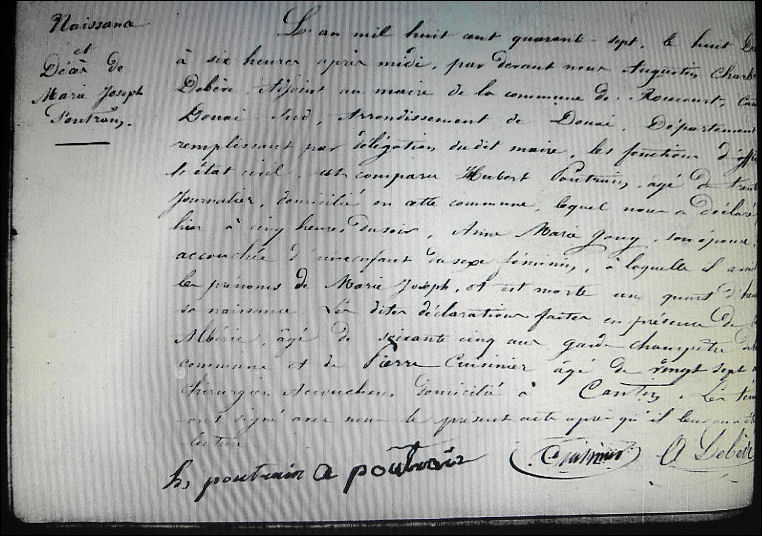 Naissance
et
Décès de
Marie Joseph
Poutrain.
L'an mil huit cent quarante-sept, le huit
à six heures après midi, par devant nous Augustin Charles
Debève Adjoint au maire de la commune de Roucourt,
Douai Sud, Arrondissement de Douai, Département
remplissant par délégation dudit maire, les fonctions
de l'état civil, est comparu Hubert Poutrain, âgé de
Journalier, domicilié en cette commune, lequel nous a déclaré
hier à cinq heures du soir, Anne Marie Gouy, son épouse,
accouchée d'un enfant du sexe féminin, à laquelle il
les prénoms de Marie Joseph, et est morte un quart
sa naissance. Les dites déclarations faites en présence de
âgé de soixante cinq ans garde champêtre
commune et de Pierre Cuisinier âgé de vingt sept
chirurgien accoucheur domicilié à Cantin. Les
ont signé avec nous le présent acte après qu'il leur en a
lecture
h, poutrain A poutrain Cuisinier A Debève